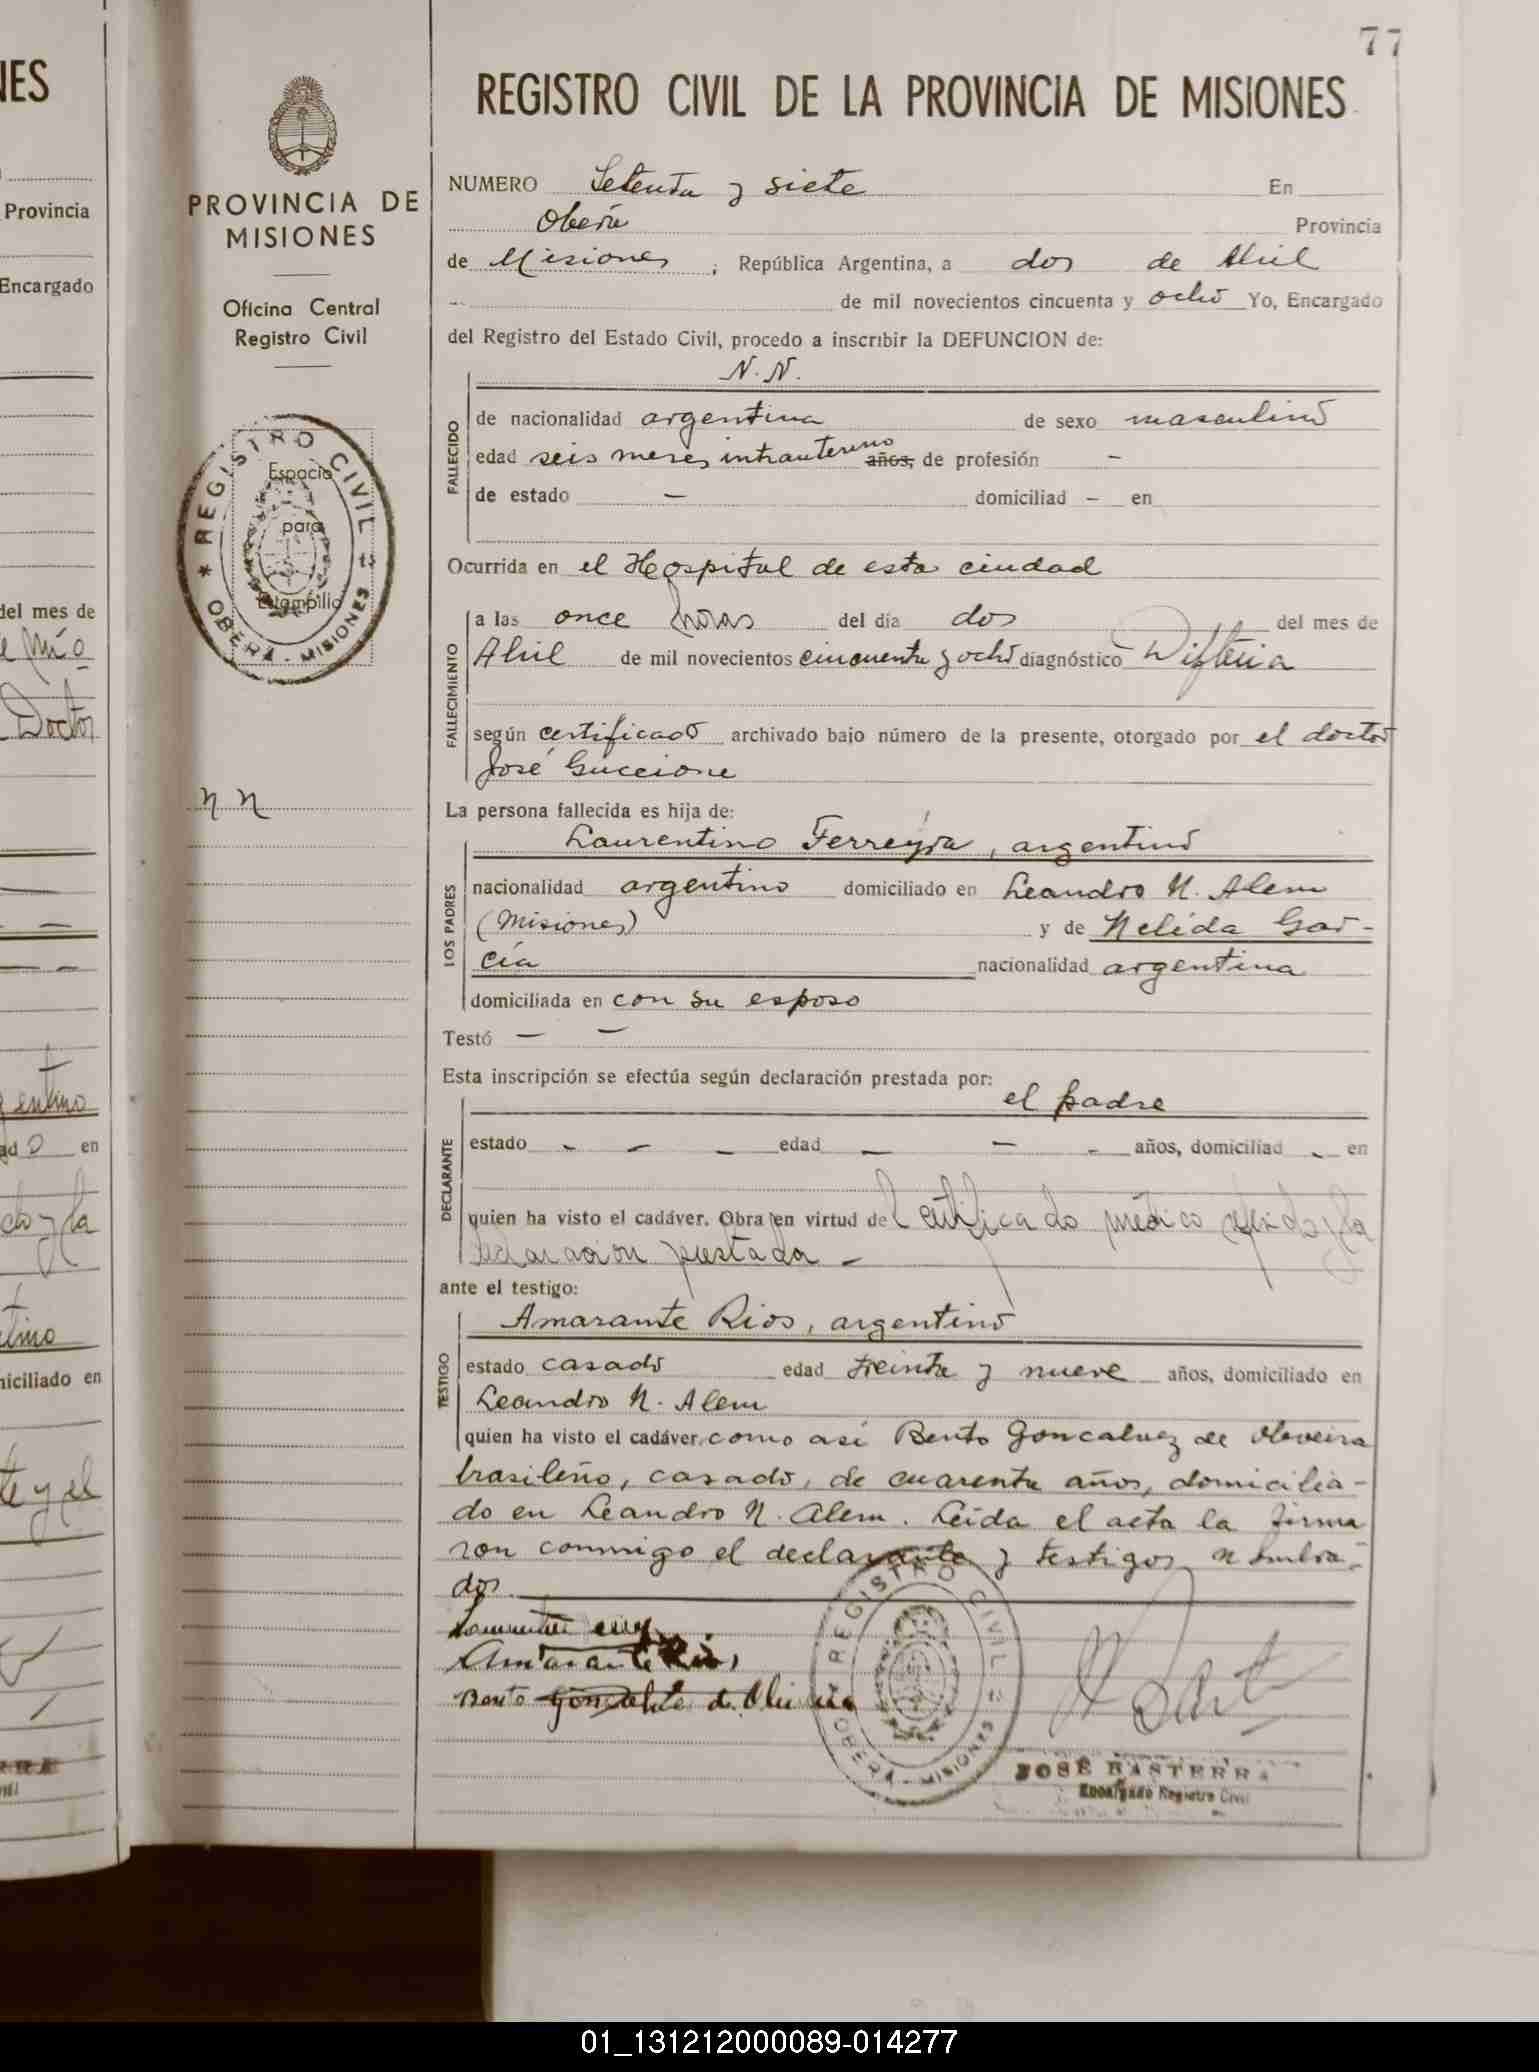 77
REGISTRO CIVIL DE LA PROVINCIA DE MISIONES
PROVINCIA DE
MISIONES
Oficina Central
Registro Civil
* REGISTRO CIVIL *
OBERÁ - MISIONES
Espacio
para
Estampilla
n n
NUMERO Setenta y siete En
Oberá Provincia
de Misiones ; República Argentina, a dos de Abril
de mil novecientos cincuenta y ocho Yo, Encargado
del Registro del Estado Civil, procedo a inscribir la DEFUNCION de:
N. N.
FALLECIDO
de nacionalidad argentina de sexo masculino
edad seis meses intrauterino años, de profesión -
de estado - domiciliad - en
Ocurrida en el Hospital de esta ciudad
FALLECIMIENTO
a las once horas del dia dos del mes de
Abril de mil novecientos cincuenta y ocho diagnóstico Difteria
según certificado archivado bajo número de la presente, otorgado por el doctor
José Guccione
La persona fallecida es hija de:
LOS PADRES
Laurentino Ferreyra, argentino
nacionalidad argentino domiciliado en Leandro N. Alem
(Misiones) y de Nelida Gar-
cía nacionalidad argentina
domiciliada en con su esposo
Testó - -
Esta inscripción se efectúa según declaración prestada por:
el padre
DECLARANTE
estado - - - edad - - - años, domiciliad - en
quien ha visto el cadáver. Obra en virtud del certificado médico referido y la
declaración prestada -
ante el testigo:
TESTIGO
Amarante Rios, argentino
estado casado edad treinta y nueve años, domiciliado en
Leandro N. Alem
quien ha visto el cadáver, como así Bento Goncalvez de Oliveira
brasileño, casado, de cuarenta años, domicilia-
do en Leandro N. Alem. Leída el acta la firma
ron conmigo el declarante y testigos nombra-
dos.
Amarante Rios
Bento
REGISTRO CIVIL
OBERÁ - MISIONES
JOSÉ BASTERRA
Encargado Registro Civil
NES
Provincia
Encargado
del mes de
Doctor
en
y la
iciliado en
te y el
01_131212000089-014277